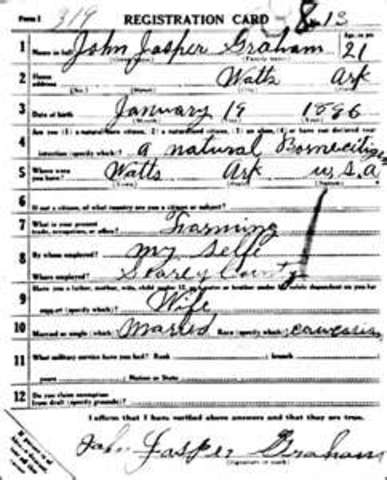 Form 1 319 REGISTRATION CARD 8-13
1 Name in full John Jasper Graham Age, in yrs. 21
(Given name) (Family name)
2 Home address Watts Ark
(No.) (Street) (City) (State)
3 Date of birth January 19 1896
(Month) (Day) (Year)
4 Are you (1) a natural-born citizen, (2) a naturalized citizen, (3) an alien, (4) or have you declared your
intention (specify which)? a natural Borncitizen
5 Where were you born? Watts Ark U.S.A
(Town) (State) (Nation)
6 If not a citizen, of what country are you a citizen or subject?
7 What is your present trade, occupation, or office? Farming
8 By whom employed? My selfe
Where employed? Searcy County
9 Have you a father, mother, wife, child under 12, or a sister or brother under 12, solely dependent on you for
support (specify which)? Wife
10 Married or single (which)? Married Race (specify which)? caucasin
11 What military service have you had? Rank ; branch
years ; Nation or State
12 Do you claim exemption from draft (specify grounds)?
I affirm that I have verified above answers and that they are true.
John Jasper Graham
(Signature or mark)